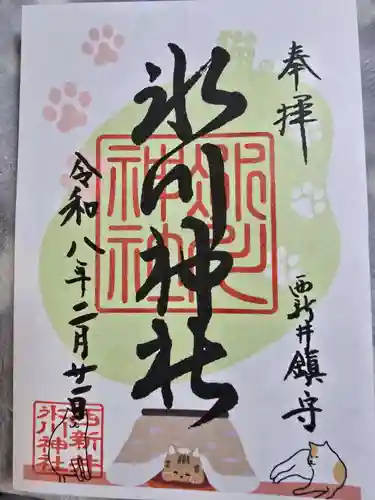 奉拝
西新井鎮守
氷川神社
氷川
神社
令和八年二月廿一日
西新井
氷川神社